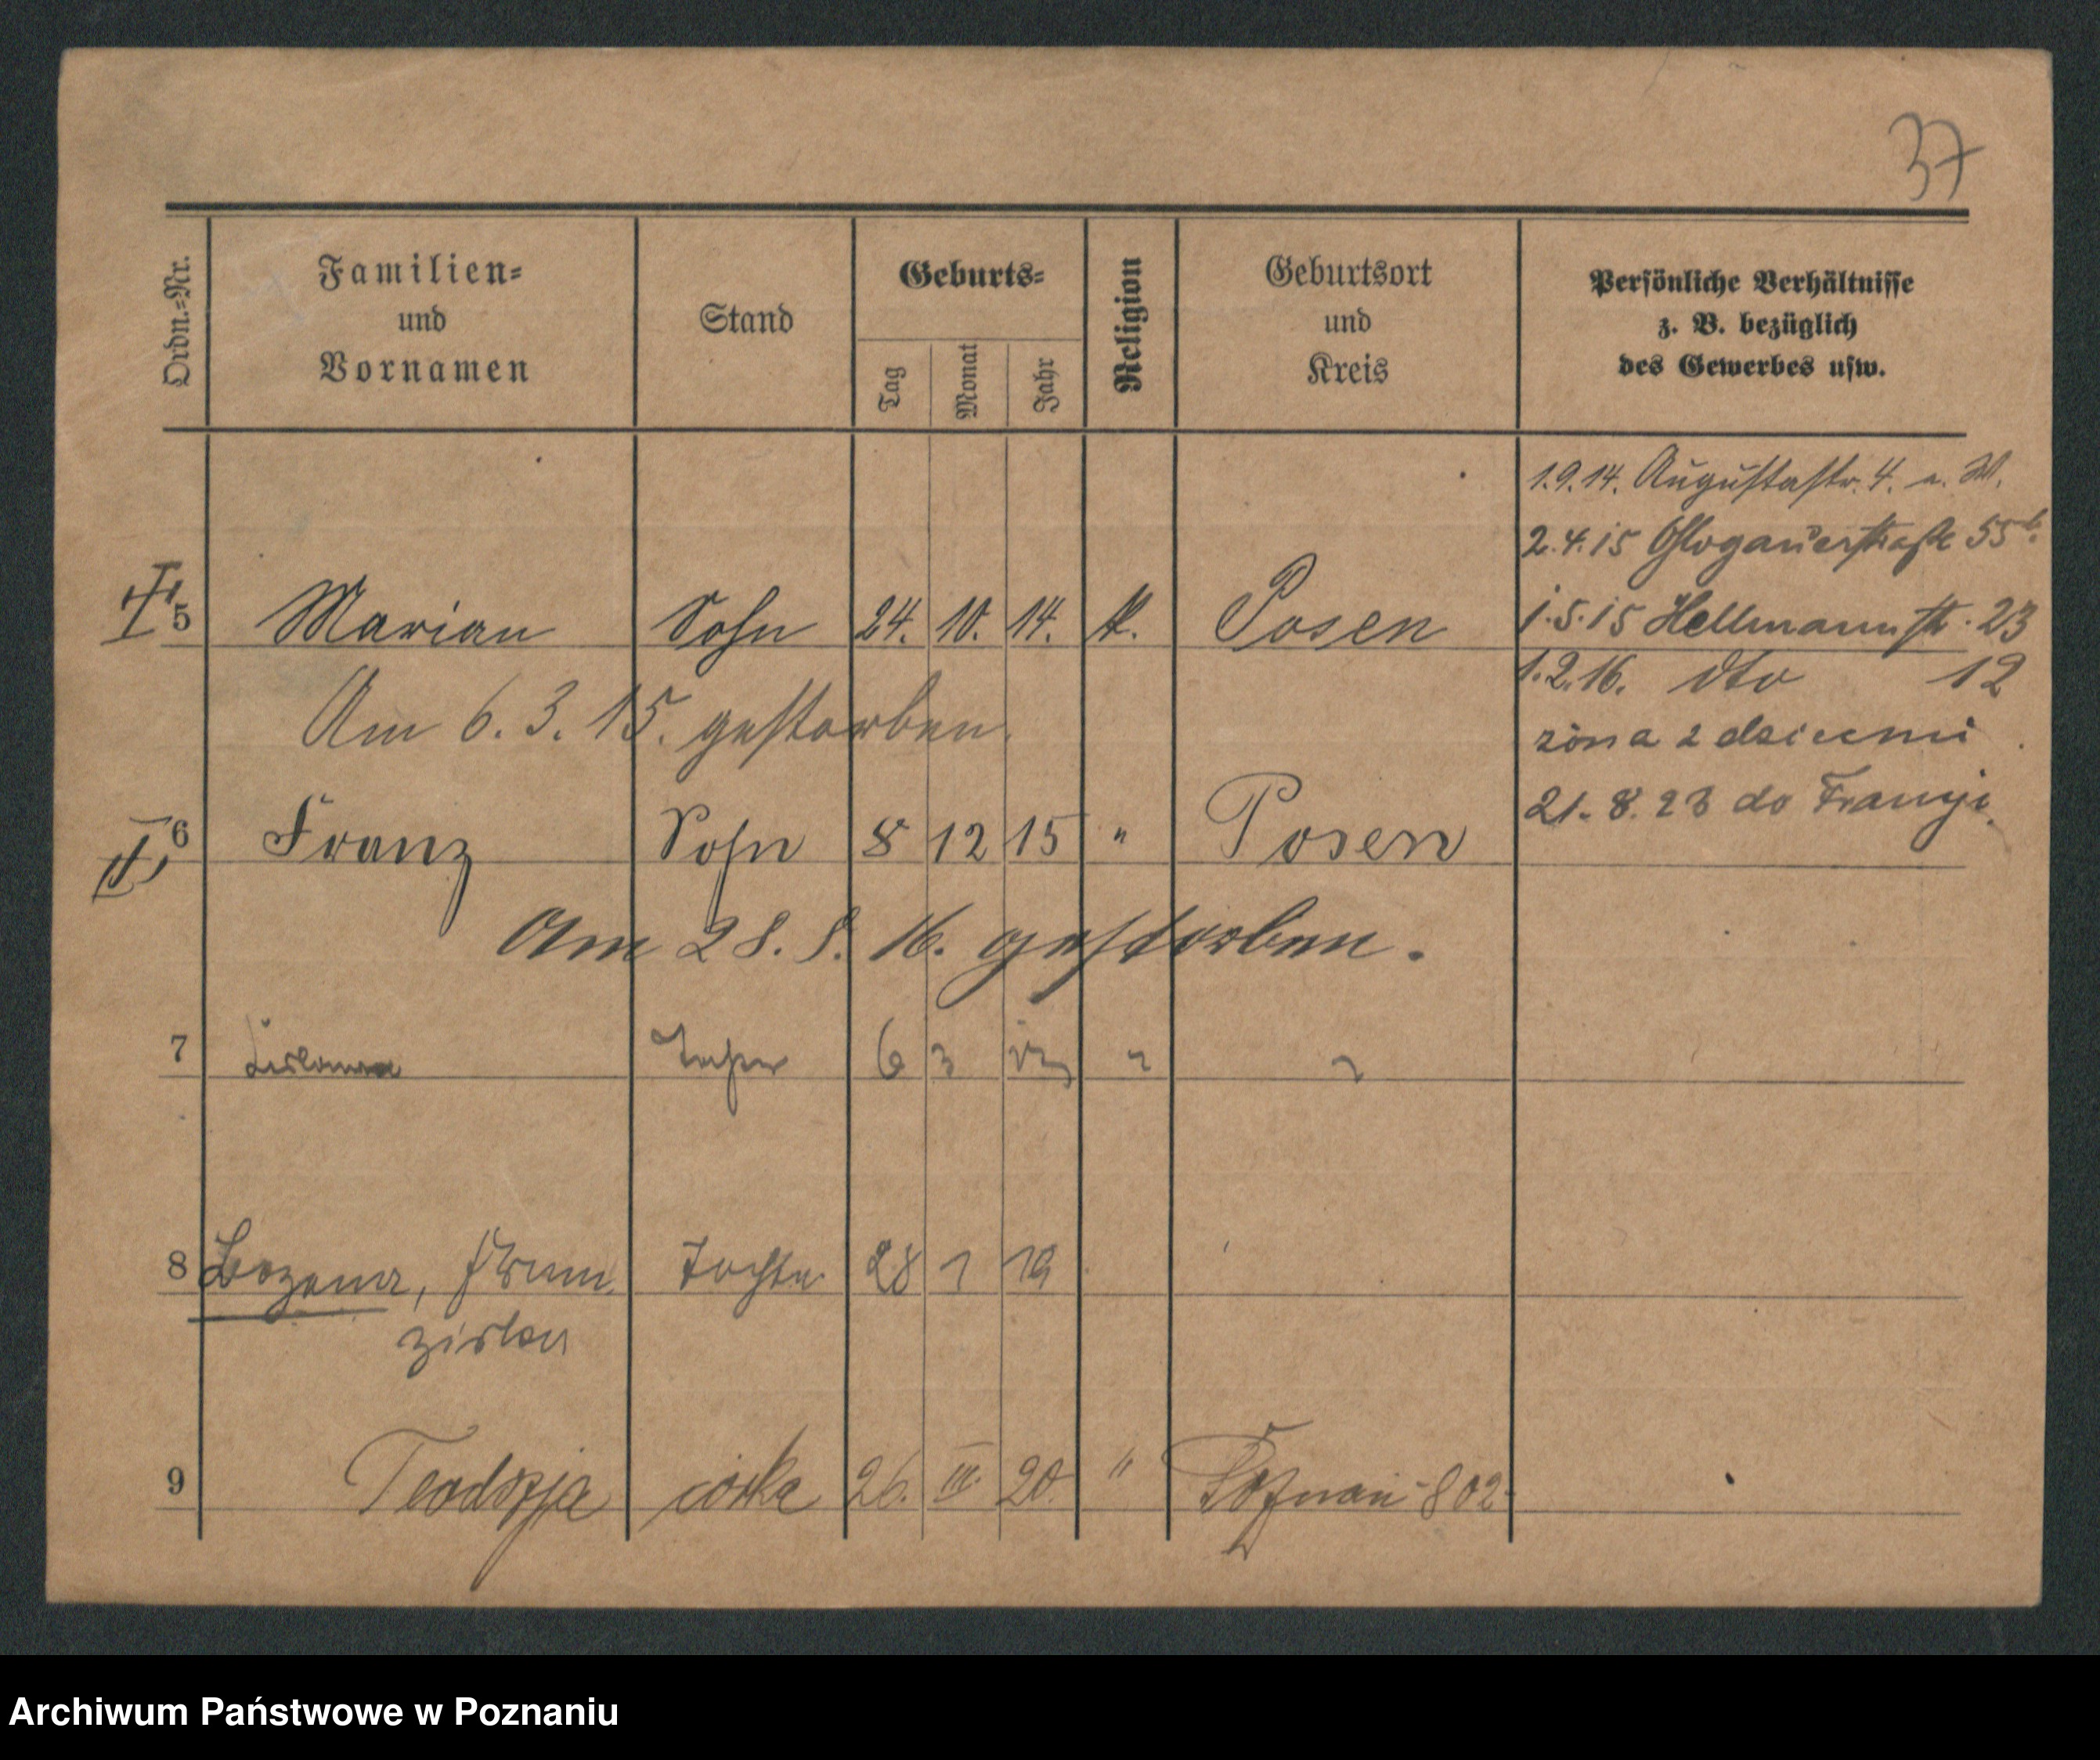 37
Ordn.-Nr.
Familien-
und
Vornamen
Stand
Geburts-
Tag
Monat
Jahr
Religion
Geburtsort
und
Kreis
Persönliche Verhältnisse
z. B. bezüglich
des Gewerbes usw.
1.9.14. Augustastr. 4. a. W.
2.4.15 Glogauerstraße 55b.
1.5.15 Hellmannstr. 23
5 Marian Sohn 24. 10. 14. k. Posen
1.2.16. dto 12
Am 6.3.15. gestorben.
żona z dziećmi
21.8.23 do Francji.
6 Franz Sohn 8 12 15 " Posen
Am 28.8.16. gestorben.
7 6 3
8 Bozena, Fran Tochter 28 1 19
ziska
9 Teodozja córka 26. III. 20. " Poznań 802
Archiwum Państwowe w Poznaniu